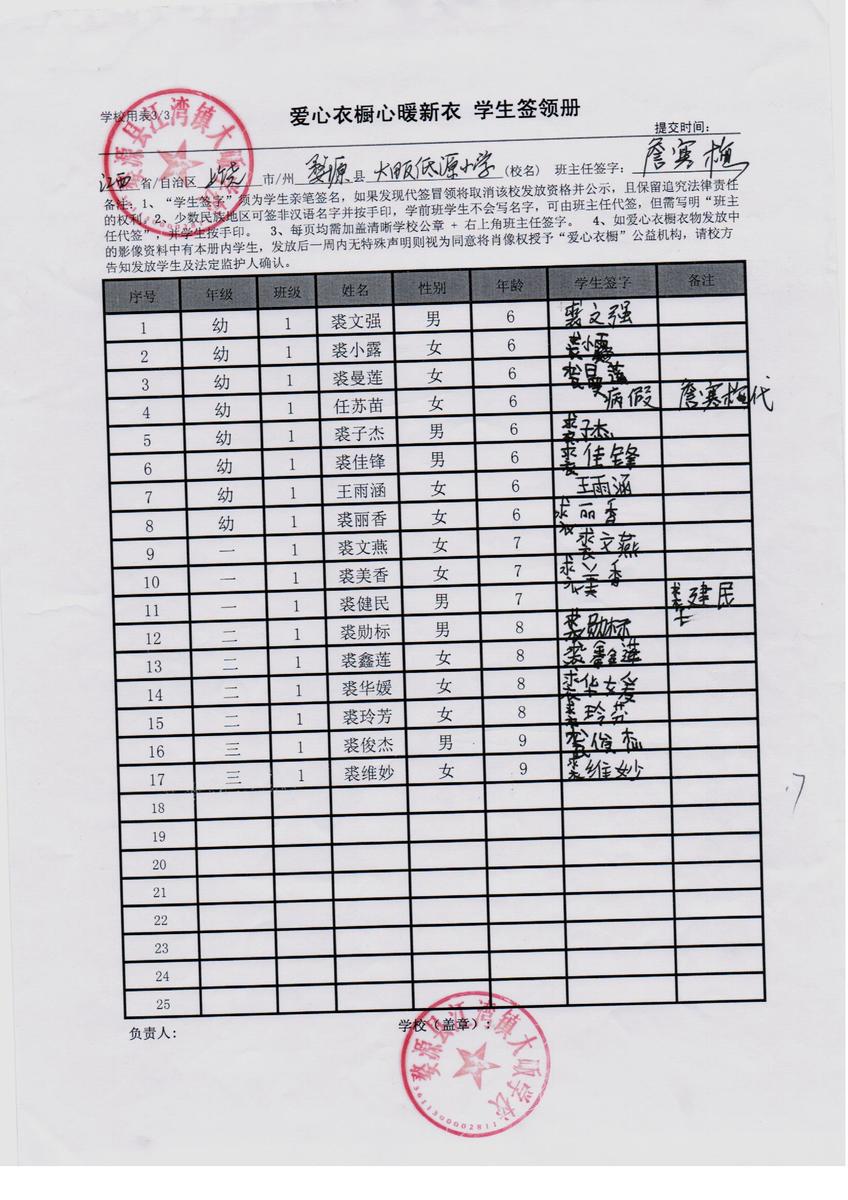 学校用表3/3
爱心衣橱心暖新衣 学生签领册
提交时间:
江西 省/自治区 上饶 市/州 婺源 县 大畈低源小学 (校名) 班主任签字: 詹赛梅
备注:1、“学生签字”须为学生亲笔签名,如果发现代签冒领将取消该校发放资格并公示,且保留追究法律责任
的权利。2、少数民族地区可签非汉语名字并按手印,学前班学生不会写名字,可由班主任代签,但需写明“班主
任代签”,并学生按手印。 3、每页均需加盖清晰学校公章 + 右上角班主任签字。 4、如爱心衣橱衣物发放中
的影像资料中有本册内学生,发放后一周内无特殊声明则视为同意将肖像权授予“爱心衣橱”公益机构,请校方
告知发放学生及法定监护人确认。
序号 年级 班级 姓名 性别 年龄 学生签字 备注
1 幼 1 裘文强 男 6 裘文强
2 幼 1 裘小露 女 6 裘小露
3 幼 1 裘曼莲 女 6 裘曼莲
4 幼 1 任苏苗 女 6 病假 詹赛梅代
5 幼 1 裘子杰 男 6 裘子杰
6 幼 1 裘佳锋 男 6 裘佳锋
7 幼 1 王雨涵 女 6 王雨涵
8 幼 1 裘丽香 女 6 裘丽香
9 一 1 裘文燕 女 7 裘文燕
10 一 1 裘美香 女 7 裘美香
11 一 1 裘健民 男 7 裘建民
12 二 1 裘勋标 男 8 裘勋标
13 二 1 裘鑫莲 女 8 裘鑫莲
14 二 1 裘华媛 女 8 裘华媛
15 二 1 裘玲芳 女 8 裘玲芳
16 三 1 裘俊杰 男 9 裘俊杰
17 三 1 裘维妙 女 9 裘维妙
18
19
20
21
22
23
24
25
负责人:
学校(盖章):
婺源县江湾镇大畈学校
3611300002811